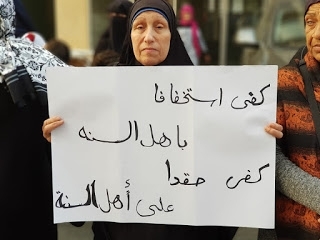 كفى استخفافا
باهل السنه
كفى حقدا
على أهل السنة